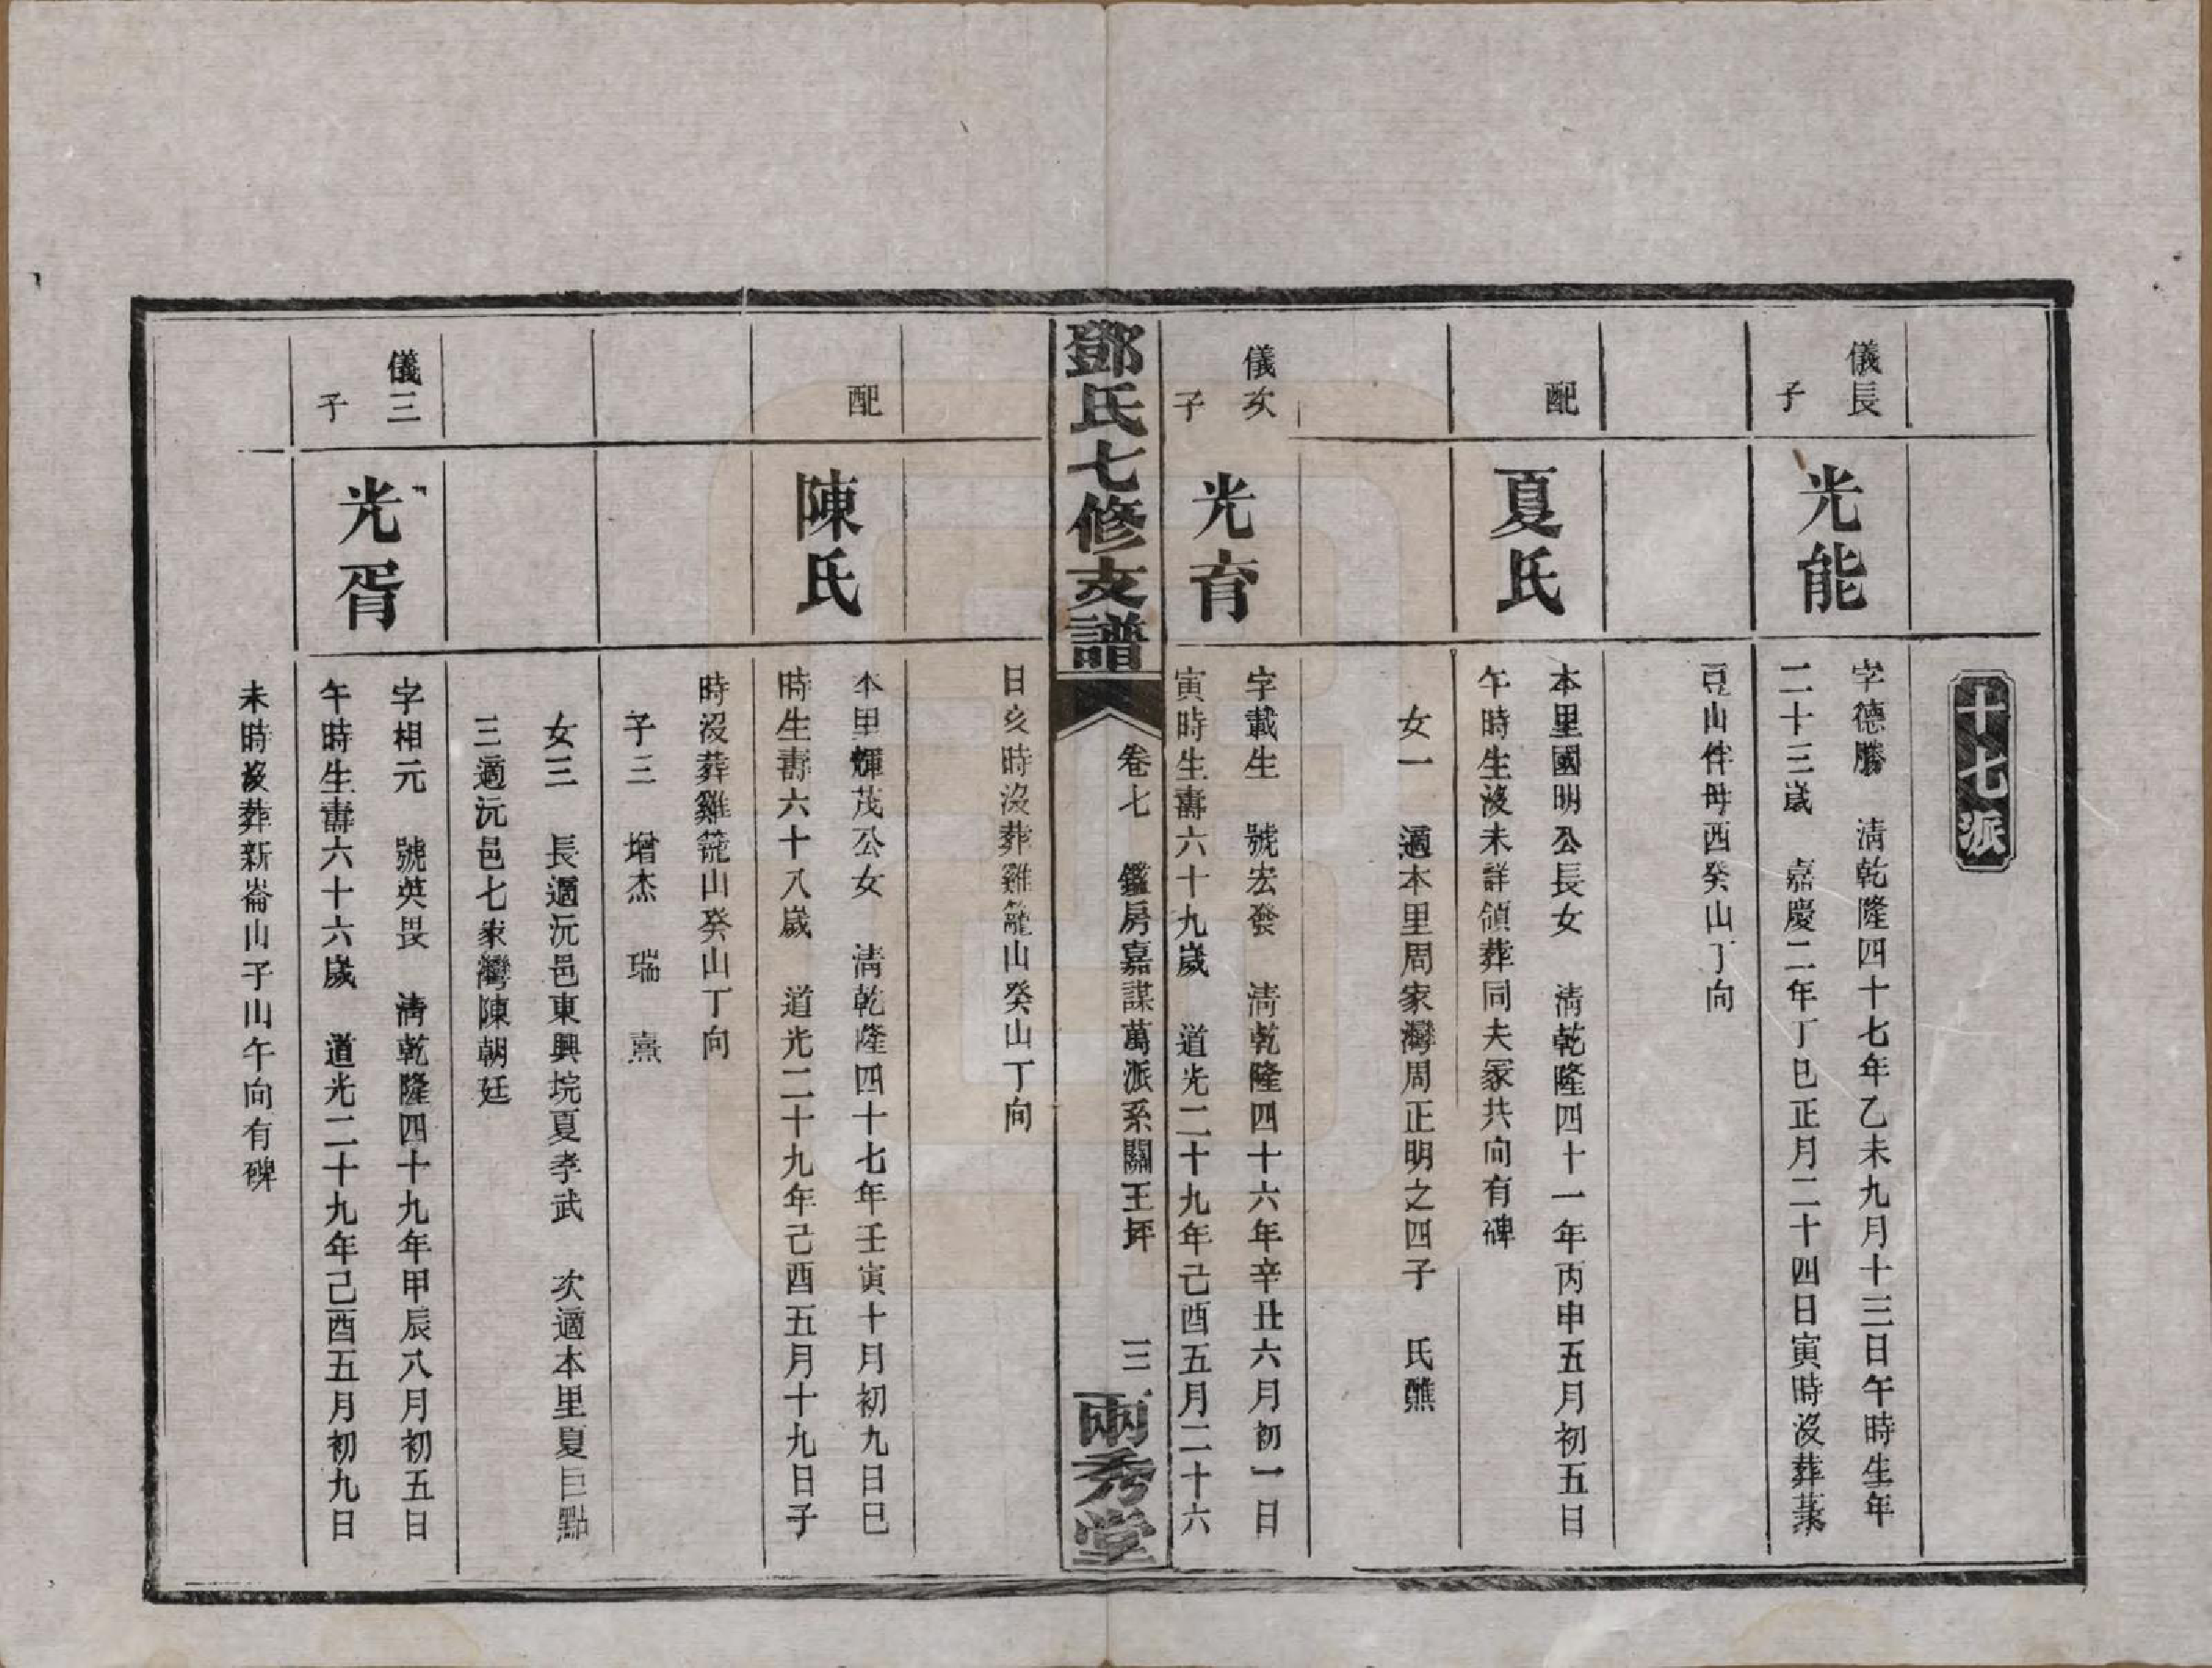 十七派
儀長
子
光能
字德勝　清乾隆四十七年乙未九月十三日午時生年
二十三歲　嘉慶二年丁巳正月二十四日寅時沒葬蒸
豆山伴母西癸山丁向
配
夏氏
本里國明公長女　清乾隆四十一年丙申五月初五日
午時生沒未詳傎葬同夫冢共向有碑
女一　適本里周家灣周正明之四子　氏醮
儀次
子
光育
字載生　號宏發　清乾隆四十六年辛丑六月初一日
寅時生壽六十九歲　道光二十九年己酉五月二十六
鄧氏七修支譜
卷七　鑑房嘉謀萬派系關王坪　三
兩秀堂
日亥時沒葬雞籠山癸山丁向
配
陳氏
本里輝茂公女　清乾隆四十七年壬寅十月初九日巳
時生壽六十八歲　道光二十九年己酉五月十九日子
時沒葬雞籠山癸山丁向
子三　增杰　瑞　熹
女三　長適沅邑東興垸夏孝武　次適本里夏巨點
三適沅邑七家灣陳朝廷
儀三
子
光胥
字相元　號英畏　清乾隆四十九年甲辰八月初五日
午時生壽六十六歲　道光二十九年己酉五月初九日
未時沒葬新崙山子山午向有碑